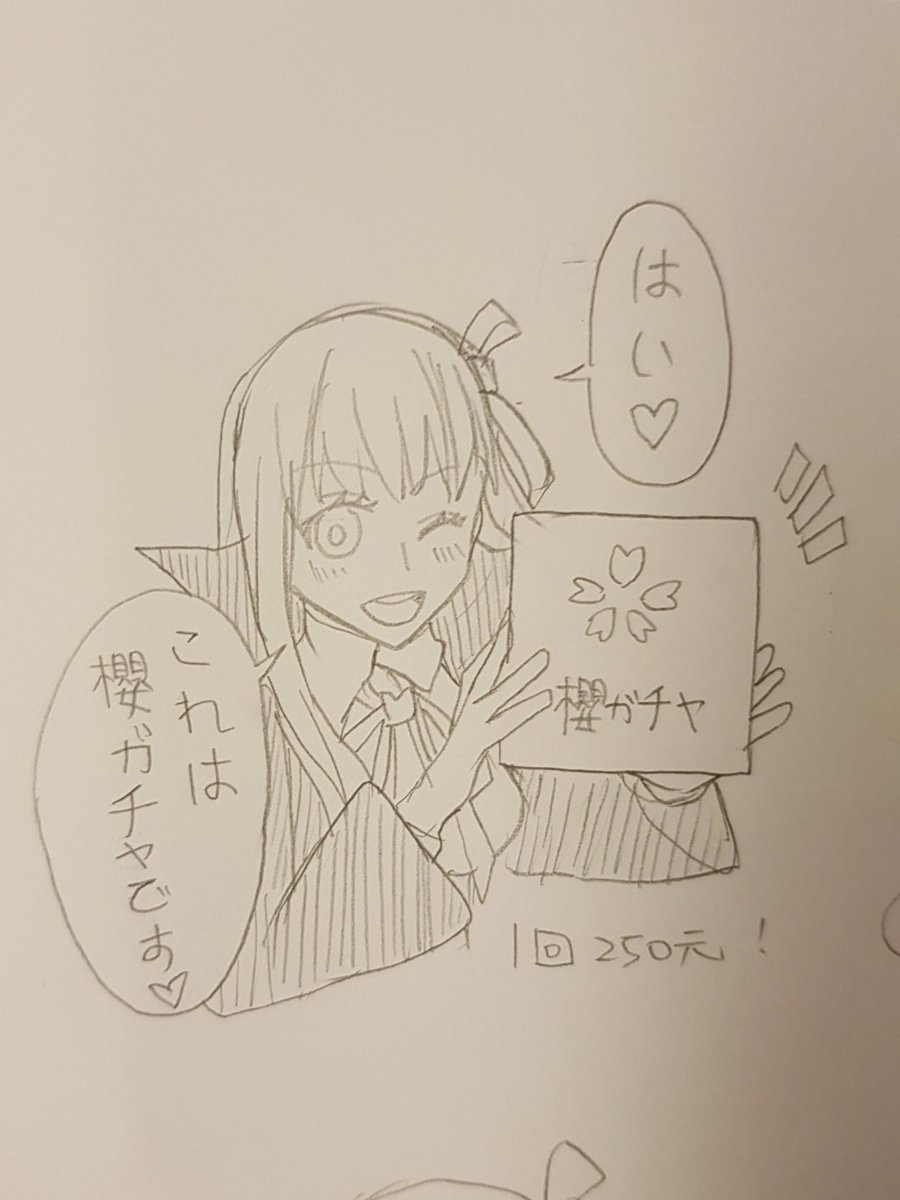 はい♡
これは
櫻ガチャです♡
櫻ガチャ
1回 250元!